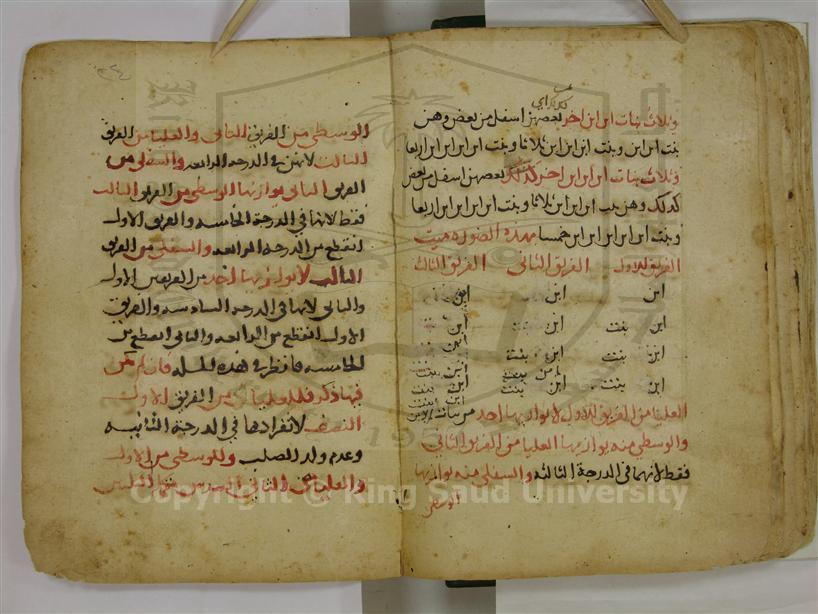 كذلك اي
وثلاث بنات ابن ابن اخر بعضهن اسفل من بعض وهن
بنت ابن ابن وبنت ابن ابن ابن ثلاثا وبنت ابن ابن ابن ابن اربعا
وثلاث بنات ابن ابن ابن اخر كذلك بعضهن اسفل من بعض
كذلك وهن بنت ابن ابن ابن ثلاثا وبنت ابن ابن ابن ابن اربعا
وبنت ابن ابن ابن ابن ابن خمسا بهذه الصورة ميت
الفريق الاول الفريق الثاني الفريق الثالث
ابن ابن ابن
ابن بنت ابن ابن
ابن بنت ابن بنت ابن
ابن بنت ابن بنت ابن بنت
ابن بنت
ابن بنت
العليا من الفريق الاول لا يوازيها احد من بنات الابن
والوسطى منه يوازيها العليا من الفريق الثاني
فقط لانهما في الدرجة الثالثة والسفلى منه يوازيها
الوسطى
الوسطى من الفريق الثاني والعليا من الفريق
الثالث لانهن في الدرجة الرابعة والسفلى من
الفريق الثاني يوازيها الوسطى من الفريق الثالث
فقط لانهما في الدرجة الخامسة والفريق الاول
انقطع من الدرجة الرابعة والسفلى من الفريق
الثالث لا يوازيها احد من الفريقين الاول
والثاني لانها في الدرجة السادسة والفريق
الاول انقطع من الرابعة والثاني انقطع من
الخامسة فانظر في هذه المسئلة فان لم يكن
فيها ذكر فللعليا من الفريق الاول
النصف لانفرادها في الدرجة الثانية
وعدم ولد الصلب وللوسطى من الاول
والعليا من الثاني السدس تكملة الثلثين
Copyright © King Saud University